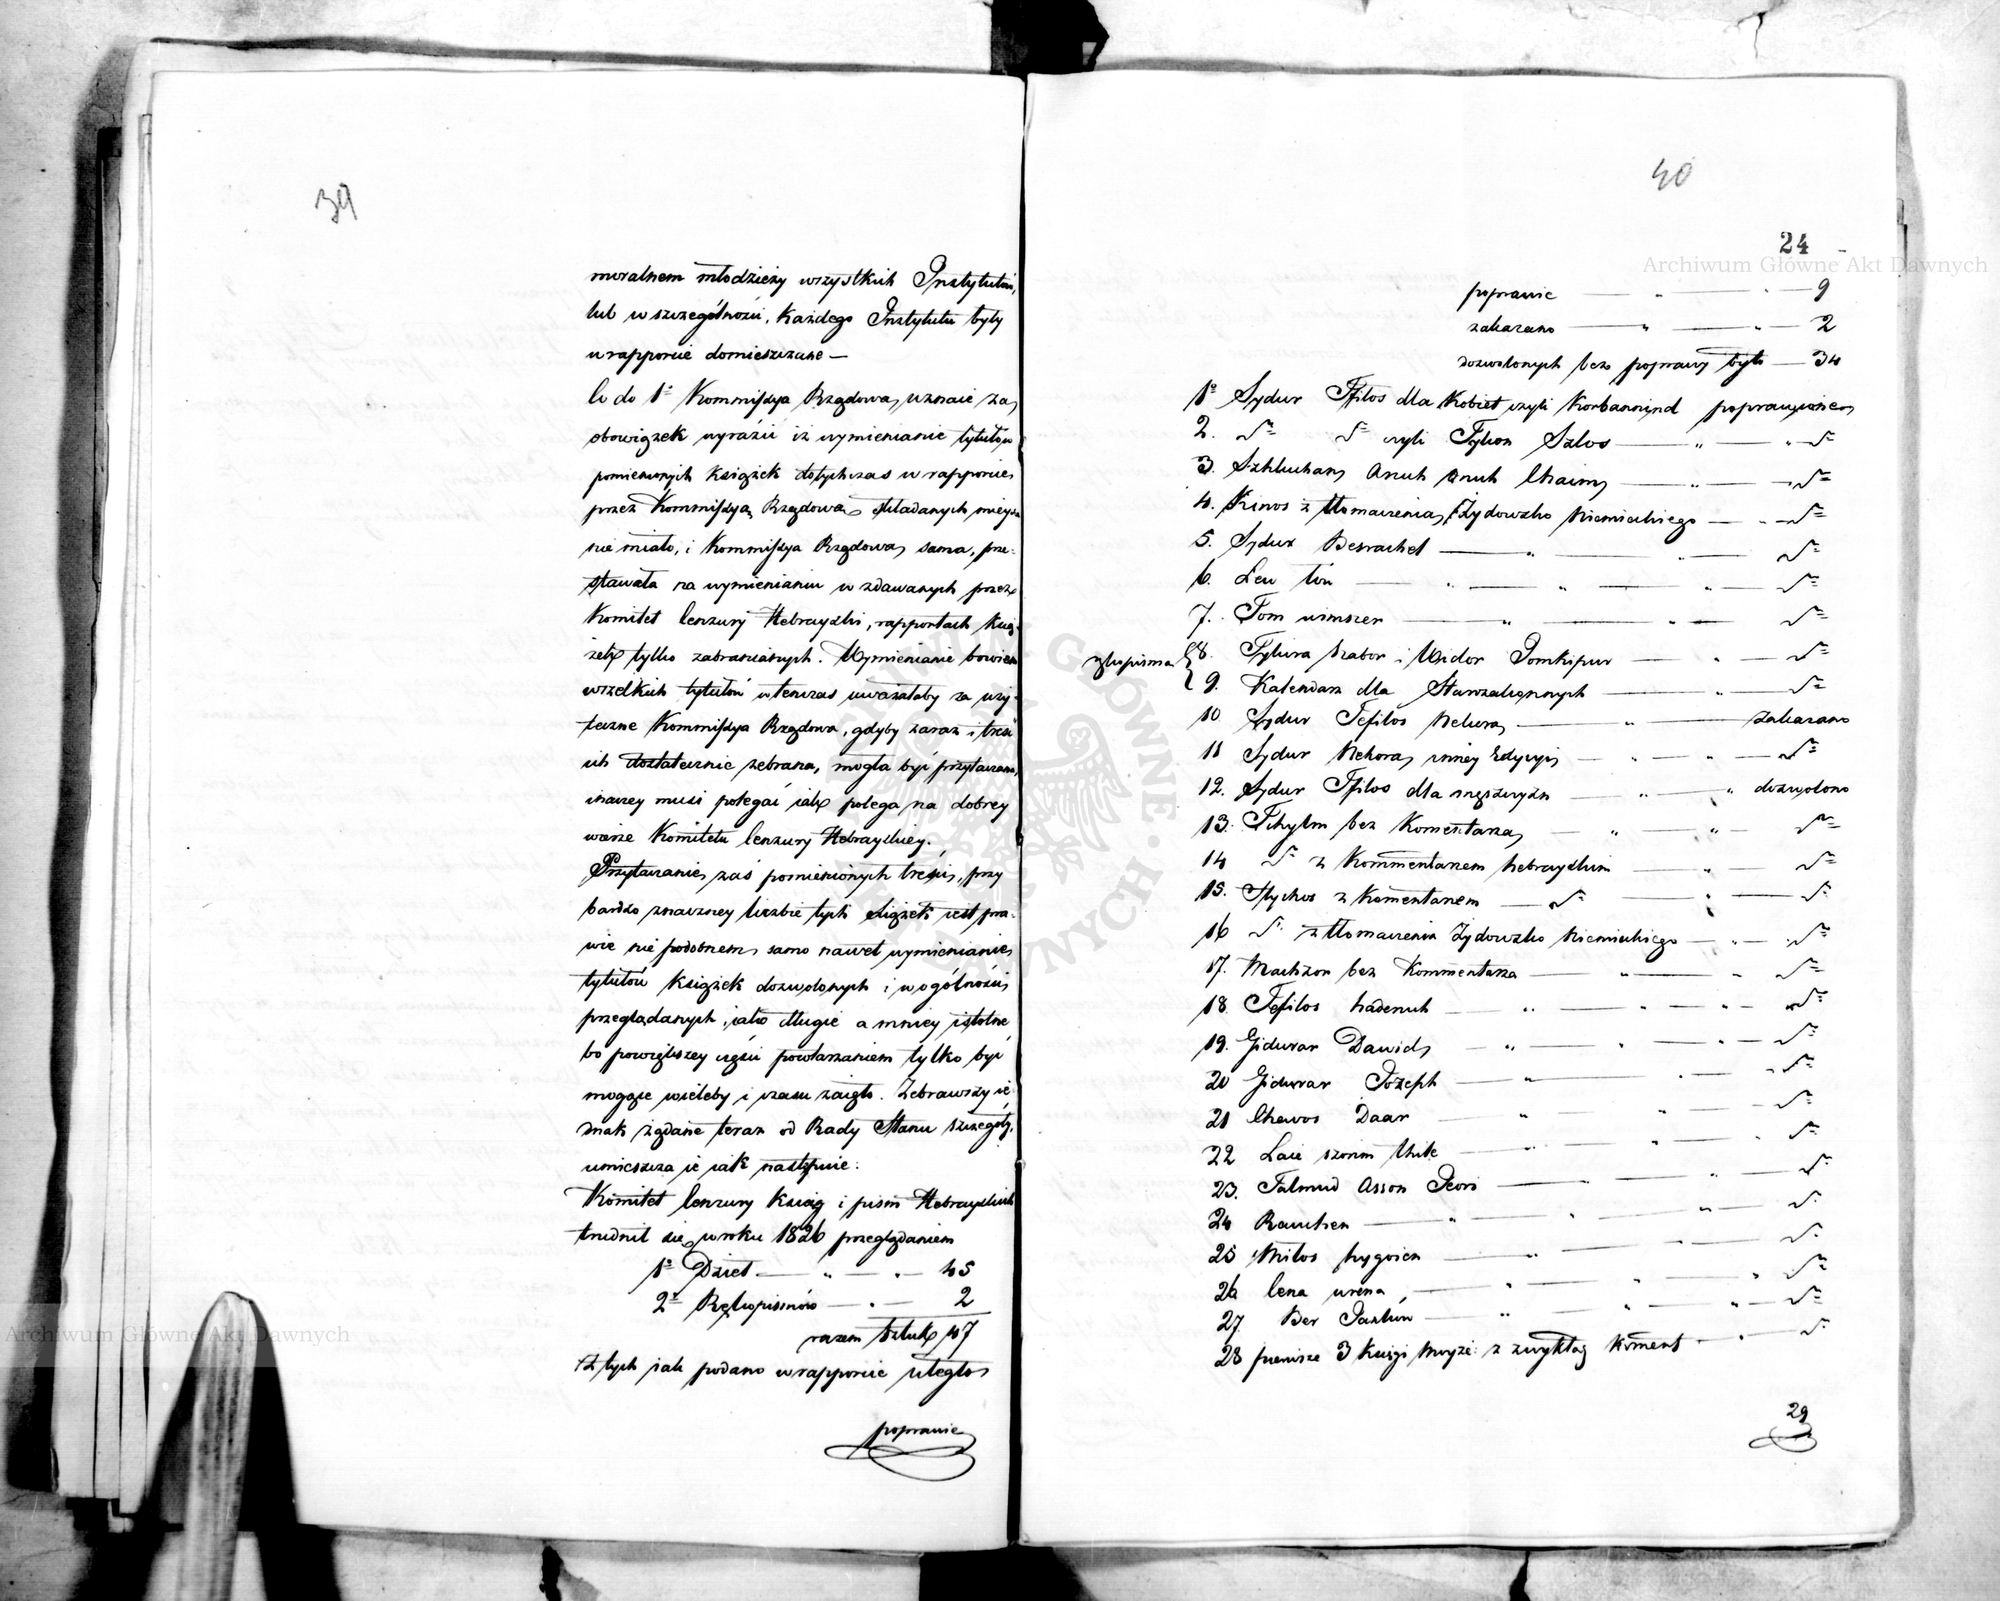 39
moralnem młodzieży wszystkich Instytutów,
lub w szczególności, każdego Instytutu były
w rapporcie domieszczane —
Co do 1º Kommissya Rządowa, uznaie za
obowiązek wyrazić iż wymienianie tytułów
pomienionych książek dotychczas w rapporcie
przez Kommissyą Rządową składanych mieysca
nie miało, i Kommissya Rządowa sama, prze-
stawała na wymienianiu w zdawanych przez
Komitet Cenzury Hebrayski, rapportach książ-
żek tylko zabranianych. Wymienianie bowiem
wszelkich tytułów wtenczas uważałaby za uży-
teczne Kommissya Rządowa, gdyby zaraz i treść
ich dostatecznie zebrana, mogła być przytaczana,
inaczey musi polegać iak polega na dobrey
wierze Komitetu Cenzury Hebrayskiey.
Przytaczanie zaś pomienionych treści, przy
bardzo znaczney liczbie tych książek iest pra-
wie nie podobnem, samo nawet wymienianie
tytułów książek dozwolonych i w ogólności
przeglądanych, iako długie a mniey istotne
bo powiększey części powtarzaniem tylko być
mogące wieleby i czasu zaięło. Zebrawszy ie-
dnak żądane teraz od Rady Stanu szczegóły,
umieszcza ie iak następuie:
Komitet Cenzury Ksiąg i pism Hebrayskich
trudnił się w roku 1826 przeglądaniem
1º Dzieł — " — " — 45
2º Rękopismów — " — 2
razem sztuk 47
Z tych iak podano w rapporcie uległo
poprawie
40
24
Archiwum Główne Akt Dawnych
poprawie — " — " — 9
zakazano — " — " — 2
dozwolonych bez poprawy było — 34
1º Sydur Tfilos dla Kobiet czyli Korbanmind poprawione
2. dº dº czyli Tykon Szlos — " — " — dº
3. Szhluchan Aruch Oruch Chaim — " — dº
4. Kinos z tłomaczenia Żydowsko Niemieckiego — " — dº
5. Sydur Besrachel — " — " — dº
6. Lew tow — " — " — " — dº
7. Tom — " — " — dº
rękopisma { 8. Tykira szabor i Widor Jomkipur — " — dº
9. Kalendarz dla Starozakonnych — " — dº
10. Sydur Tefilos Nehura — " — zakazano
11 Sydur Nehora inney Edycyi — " — " — dº
12. Sydur Tfilos dla mężczyzn — " — " dozwolono
13. Tehylm bez Komentarza — " — " — dº
14 dº z Kommentarzem hebrayskim — " — dº
15. Slychos z Komentarzem — dº — " — dº
16 dº z tłomaczenia Żydowsko Niemieckiego — " — dº
17. Machzor bez Kommentarza — " — " — dº
18. Tefilos — " — " — " — dº
19. Gidurar Dawid — " — " — " — dº
20 Gidurar Jozeph — " — " — dº
21 Chowos Daar — " — " — dº
22 — " — " — " — dº
23. Talmud — " — dº
24 — " — " — " — dº
25 — " — dº
26 — " — " — " — dº
27. Ber — " — " — " — dº
28 pierwsze 3 Księgi Moyże: z zwykłą Koment — " — dº
29
Archiwum Główne Akt Dawnych